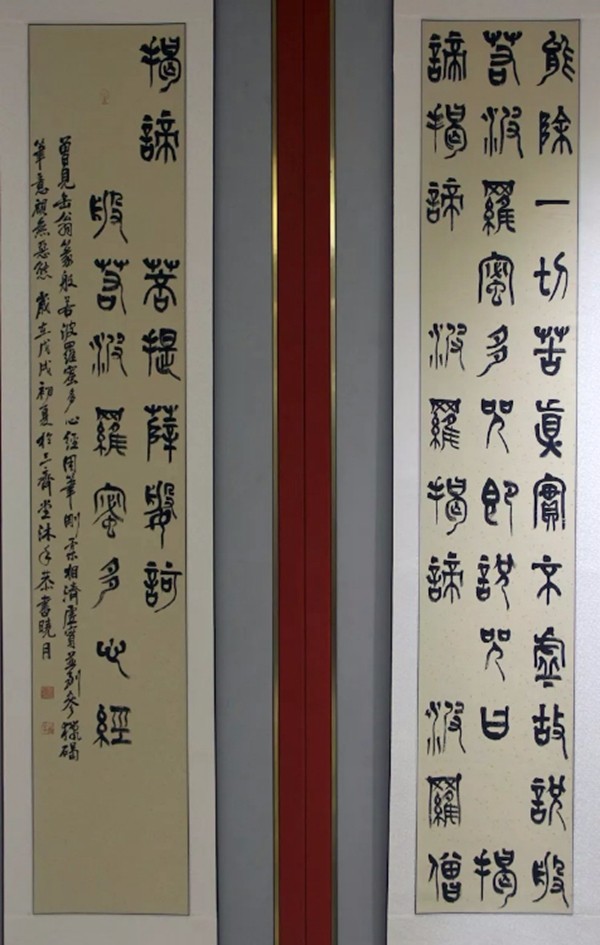 能除一切苦真實不虛故說般
若波羅蜜多咒即說咒曰 揭
諦揭諦 波羅揭諦 波羅僧
揭諦 菩提薩婆訶
般若波羅蜜多心經
曾見缶翁篆般若波羅蜜多心經用筆剛柔相濟虛實並列參獵碣
筆意頗無惡態 歲在戊戌初夏於三齊堂沐手恭書曉月